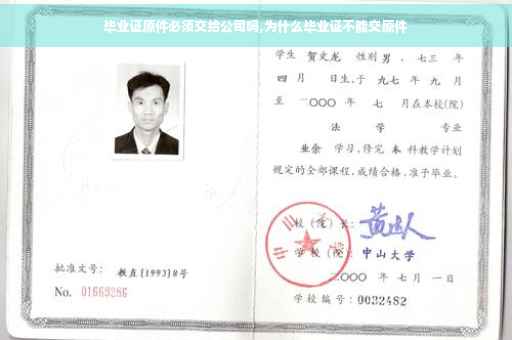 毕业证原件必须交给公司吗,为什么毕业证不能交原件
学生 贺文龙 性别 男 、七三 年
四月 日生,于 九七 年 九 月
至 二〇〇〇 年 七 月在本校(院)
法 学 专业
业余 学习,修完 本 科教学计划
规定的全部课程,成绩合格,准予毕业。
校(院)长:
学校(院): 中山大学
二〇〇〇 年 七月 一日
学校编号:0032482
批准文号: 教直[1993]8号
No. 01663286